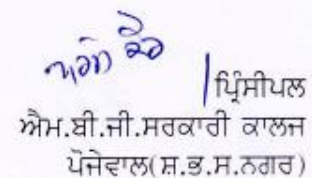 ਪ੍ਰਿੰਸੀਪਲ
ਐਮ.ਬੀ.ਜੀ.ਸਰਕਾਰੀ ਕਾਲਜ
ਪੋਜੇਵਾਲ(ਸ਼.ਭ.ਸ.ਨਗਰ)